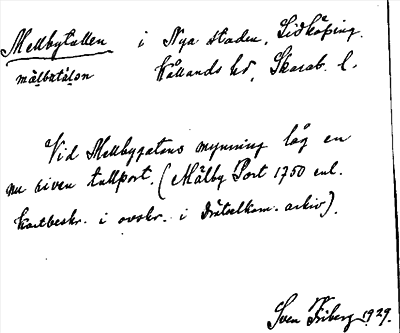 Mellbytullen i Nya staden, Lidköping.
mälbatälon Kållands hd, Skarab. l.
Vid Mellbygatans mynning låg en
nu riven tullport. (Mälby Port 1750 enl.
kartbeskr. i avskr. i Drätselkam. arkiv).
Sven Friberg 1929.